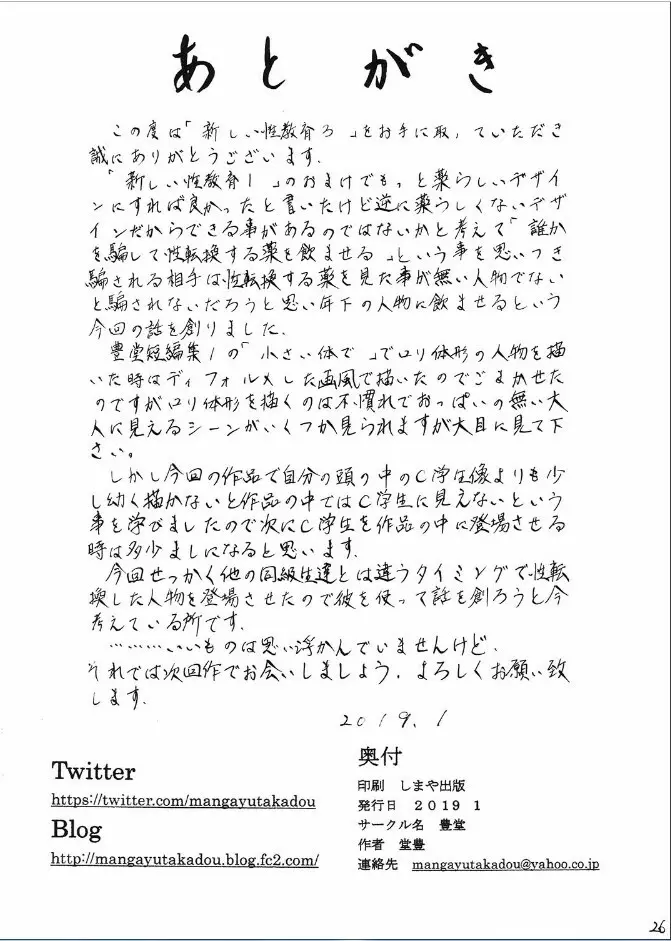 あとがき
この度は「新しい性教育3」をお手に取っていただき
誠にありがとうございます.
「新しい性教育1」のおまけでもっと薬らしいデザイ
ンにすれば良かったと書いたけど逆に薬らしくないデザ
インだからできる事があるのではないかと考えて「誰か
を騙して性転換する薬を飲ませる」という事を思いつき
騙される相手は性転換する薬を見た事が無い人物でない
と騙されないだろうと思い年下の人物に飲ませるという
今回の話を創りました.
豊堂短編集1の「小さい体で」でロリ体形の人物を描
いた時はディフォルメした画風で描いたのでごまかせた
のですがロリ体形を描くのは不慣れでおっぱいの無い大
人に見えるシーンがいくつか見られますが大目に見て下
さい。
しかし今回の作品で自分の頭の中のC学生像よりも少
し幼く描かないと作品の中ではC学生に見えないという
事を学びましたので次にC学生を作品の中に登場させる
時は多少ましになると思います.
今回せっかく他の同級生達とは違うタイミングで性転
換した人物を登場させたので彼を使って話を創ろうと今
考えている所です.
………いいものは思い浮かんでいませんけど.
それでは次回作でお会いしましょう.よろしくお願い致
します.
2019.1
Twitter
https://twitter.com/mangayutakadou
Blog
http://mangayutakadou.blog.fc2.com/
奥付
印刷 しまや出版
発行日 2019 1
サークル名 豊堂
作者 堂豊
連絡先 mangayutakadou@yahoo.co.jp
26